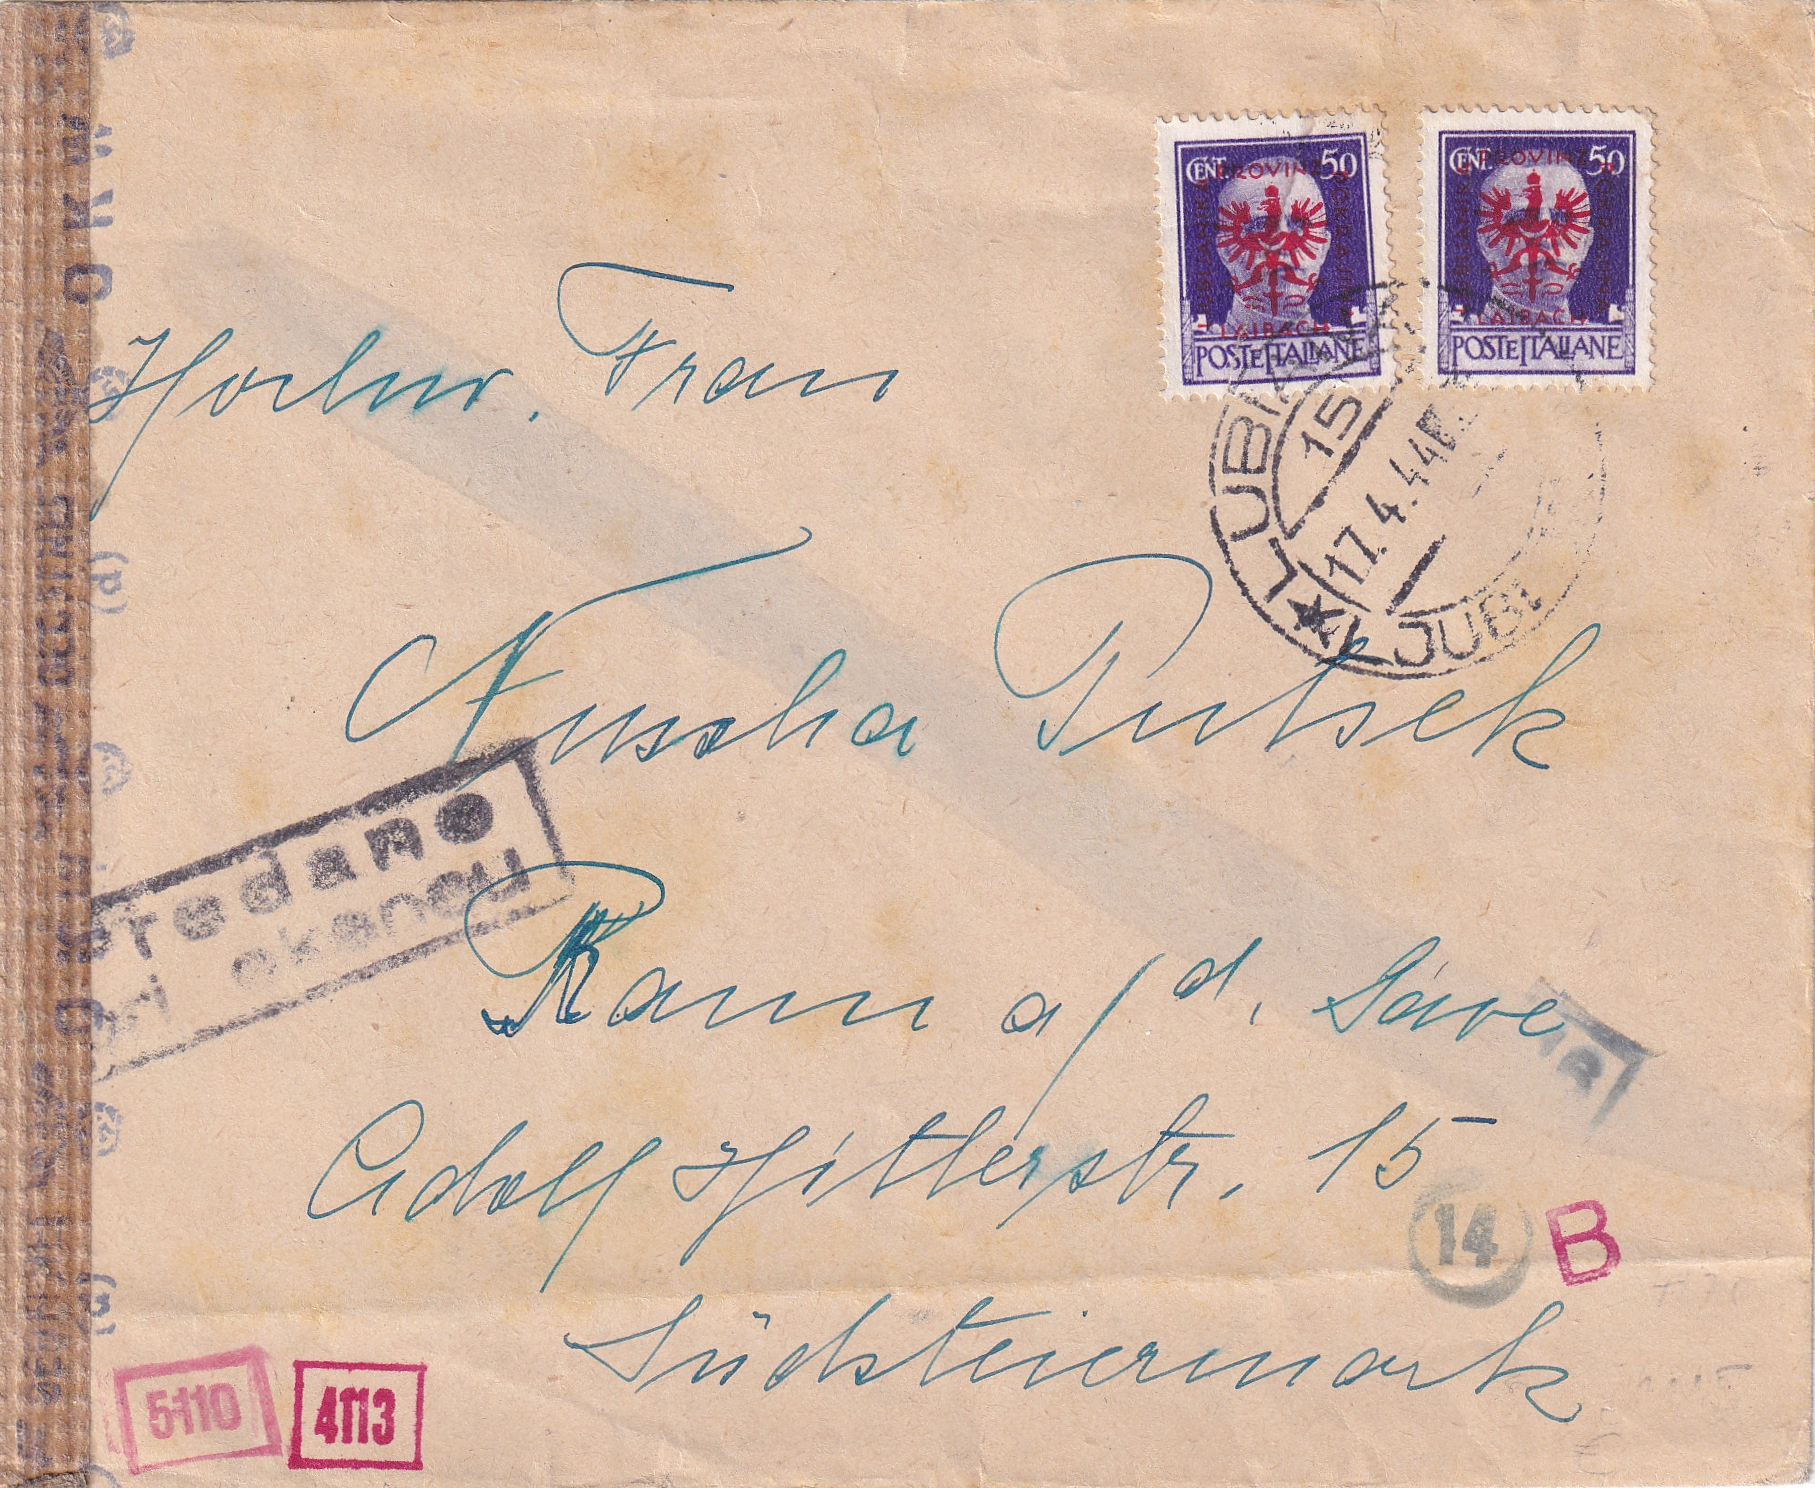 CENT. 50
PROVINZ
LAIBACH
POSTE ITALIANE
CENT. 50
PROVINZ
LAIBACH
POSTE ITALIANE
LJUBLJANA
15
17.4.44
LJUB
Hochw. Frau
Nuscha Putsek
redano
pri okencu
Rann a/d. Save
Adolf Hitlerstr. 15
14
B
Südsteiermark
5110
4113
GEÖFFNET
OKW
(d)
(d)